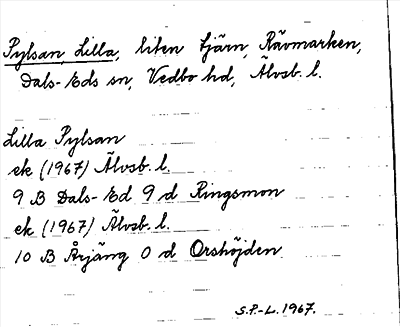 Pylsan, Lilla, liten tjärn, Rävmarken,
Dals-Eds sn, Vedbo hd, Älvsb. l.
Lilla Pylsan
ek (1967) Älvsb. l.
9 B Dals-Ed 9 d Ringsmon
ek (1967) Älvsb. l.
10 B Årjäng 0 d Orshöjden
S.P.-L. 1967.